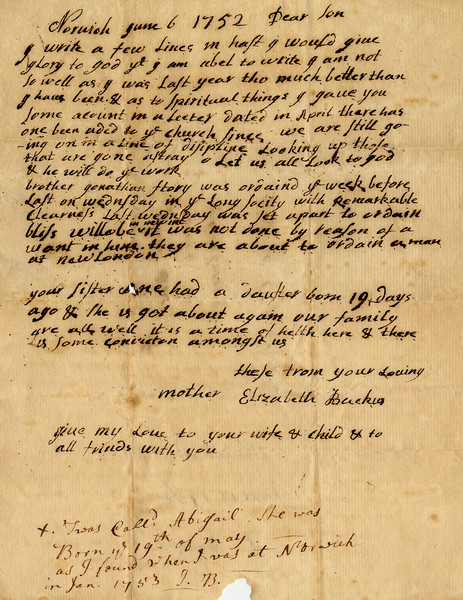 Norwich june 6 1752 Dear Son
y write a few Lines in hast y would give
glory to god yt y am abel to write y am not
so well as y was Last year tho much better than
y have been & as to spiritual things y gave you
some acount in a Leter dated in April there has
one been aded to ye church since we are still go-
ing on in a Line of discipline Looking up those
that are gone astray o Let us all Look to god
& he will do ye work
brother jonathan story was ordaind ye week before
Last on wednsday in ye Long socity with Remarkable
Clearness Last wednsday was set apart to ordain
bliss willobe it was not done by reason of a
want in him they are about to ordain a man
at new London
your sister had a dauter born 19 days
ago & she is got about again our family
are all well it is a time of helth here & there
is some conviction amongst us
these from your Loving
mother Elizabeth Backus
give my Love to your wife & child & to
all frinds with you
+ 'Twas Calld Abigail She was
Born ye 19th of may
as I found when I was at Norwich
in Jan. 1753 I. B.